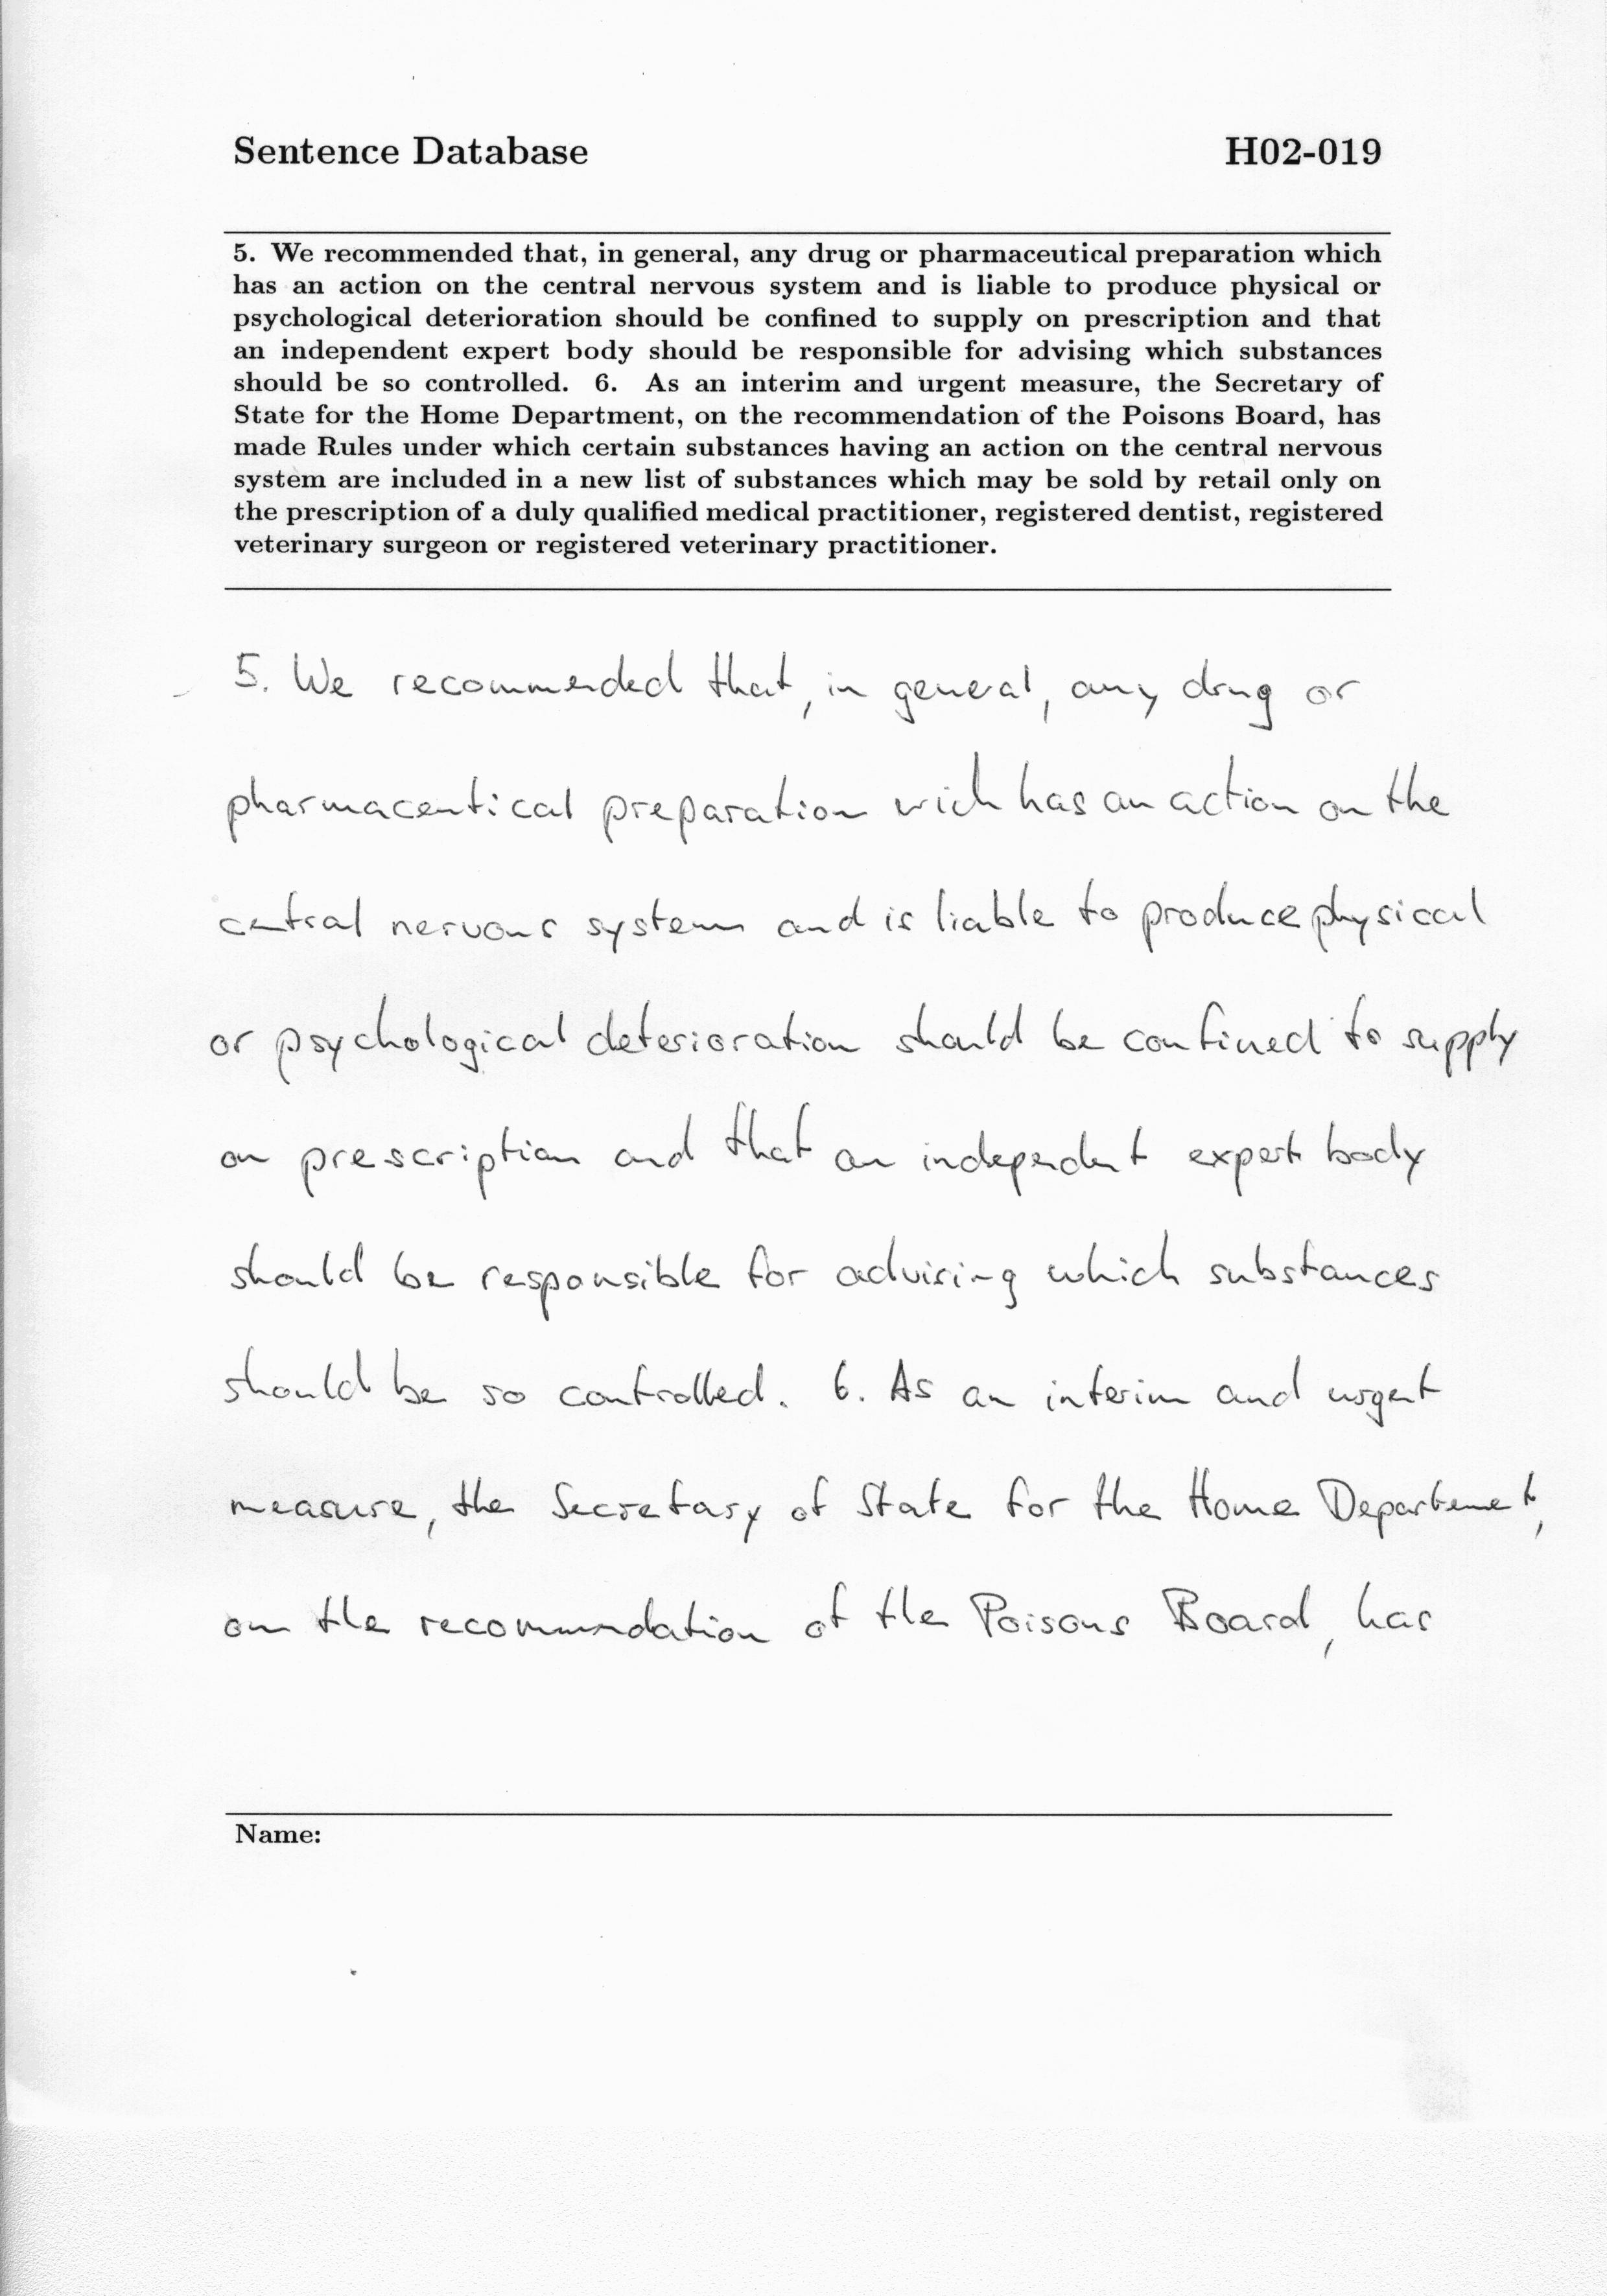 Sentence Database H02-019
5. We recommended that, in general, any drug or pharmaceutical preparation which
has an action on the central nervous system and is liable to produce physical or
psychological deterioration should be confined to supply on prescription and that
an independent expert body should be responsible for advising which substances
should be so controlled. 6. As an interim and urgent measure, the Secretary of
State for the Home Department, on the recommendation of the Poisons Board, has
made Rules under which certain substances having an action on the central nervous
system are included in a new list of substances which may be sold by retail only on
the prescription of a duly qualified medical practitioner, registered dentist, registered
veterinary surgeon or registered veterinary practitioner.
5. We recommended that, in general, any drug or
pharmaceutical preparation wich has an action on the
central nervous system and is liable to produce physical
or psychological deterioration should be confined to supply
on prescription and that an independent expert body
should be responsible for advising which substances
should be so controlled. 6. As an interim and urgent
measure, the Secretary of State for the Home Departement,
on the recommendation of the Poisons Board, has
Name: